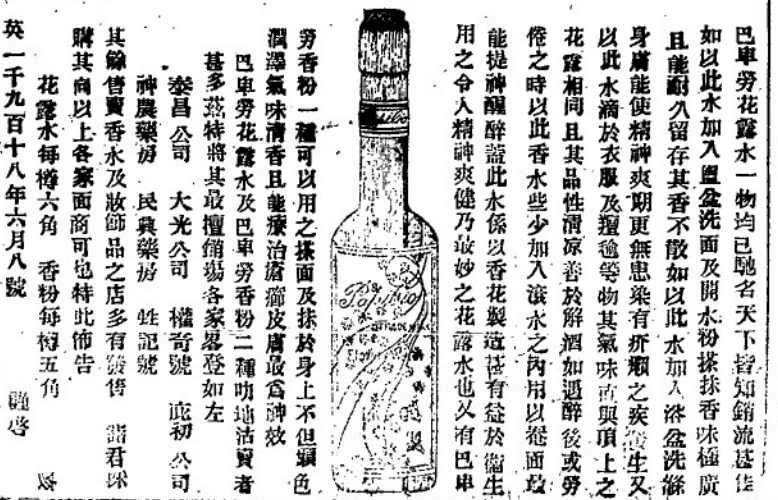 巴車勞花露水一物均已馳名天下皆知銷流甚佳
如以此水加入盥盆洗面及開水粉搽抹香味極廣
且能耐久留存其香不散如以此水加入浴盆洗滌
身膚能使精神爽期更無患染有疥癩之疾發生又
以此水滴於衣服及氊毯等物其氣味直與頂上之
花露相同且其品性清凉善於解酒如遇醉後或勞
倦之時以此香水些少加入滾水之內用以卷面最
能提神醒醉蓋此水係以香花製造甚有益於衞生
用之令人精神爽健乃最妙之花露水也又有巴車
勞香粉一種可以用之搽面及抹於身上不但顏色
潤澤氣味清香且能療治瘡癤皮膚最爲神效
巴車勞花露水及巴車勞香粉二種叻地沽賣者
甚多茲特將其最擅銷塲各家畧登如左
泰昌公司 大光公司 權奇號 成初公司
神農藥房 民興藥房 牲記號
其餘售賣香水及妝飾品之店多有發售 諸君採
購其向以上各家面商可也特此佈告
花露水每樽六角 香粉每樽五角
英一千九百十八年六月八號 謹啓